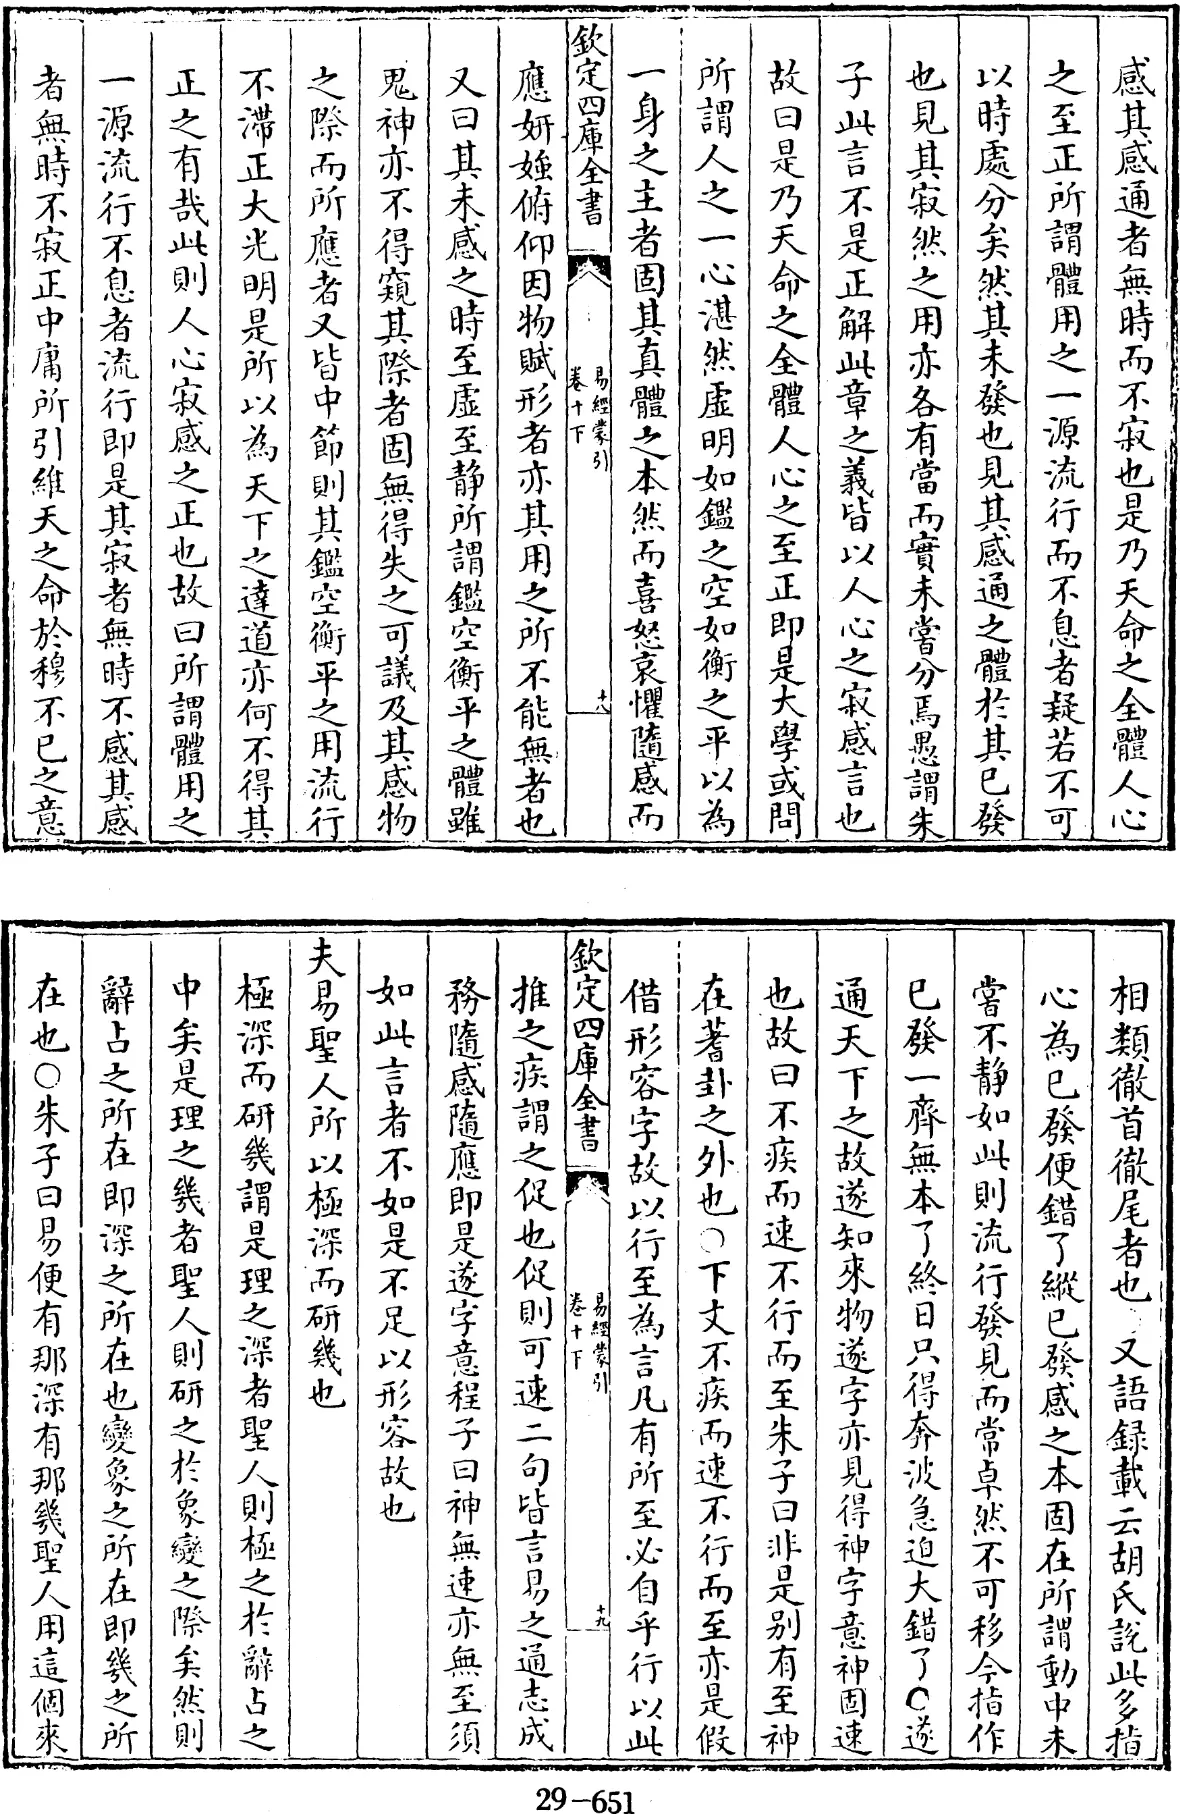 感其感通者無時而不寂也是乃天命之全體人心
之至正所謂體用之一源流行而不息者疑若不可
以時處分矣然其未發也見其感通之體於其已發
也見其寂然之用亦各有當而實未嘗分焉愚謂朱
子此言不是正解此章之義皆以人心之寂感言也
故曰是乃天命之全體人心之至正即是大學或問
所謂人之一心湛然虛明如鑑之空如衡之平以為
一身之主者固其真體之本然而喜怒哀懼隨感而
欽定四庫全書
易經蒙引
卷十下
十八
應妍媸俯仰因物賦形者亦其用之所不能無者也
又曰其未感之時至虛至靜所謂鑑空衡平之體雖
鬼神亦不得窺其際者固無得失之可議及其感物
之際而所應者又皆中節則其鑑空衡平之用流行
不滯正大光明是所以為天下之達道亦何不得其
正之有哉此則人心寂感之正也故曰所謂體用之
一源流行不息者流行即是其寂者無時不感其感
者無時不寂正中庸所引維天之命於穆不已之意
相類徹首徹尾者也又語錄載云胡氏說此多指
心為已發便錯了縱已發感之本固在所謂動中未
嘗不靜如此則流行發見而常卓然不可移今指作
已發一齊無本了終日只得奔波急迫大錯了○遂
通天下之故遂知來物遂字亦見得神字意神固速
也故曰不疾而速不行而至朱子曰非是别有至神
在蓍卦之外也○下文不疾而速不行而至亦是假
借形容字故以行至為言凡有所至必自乎行以此
欽定四庫全書
易經蒙引
卷十下
十九
推之疾謂之促也促則可速二句皆言易之通志成
務隨感隨應即是遂字意程子曰神無速亦無至須
如此言者不如是不足以形容故也
夫易聖人所以極深而研幾也
極深而研幾謂是理之深者聖人則極之於辭占之
中矣是理之幾者聖人則研之於象變之際矣然則
辭占之所在即深之所在也變象之所在即幾之所
在也○朱子曰易便有那深有那幾聖人用這個來
29-651